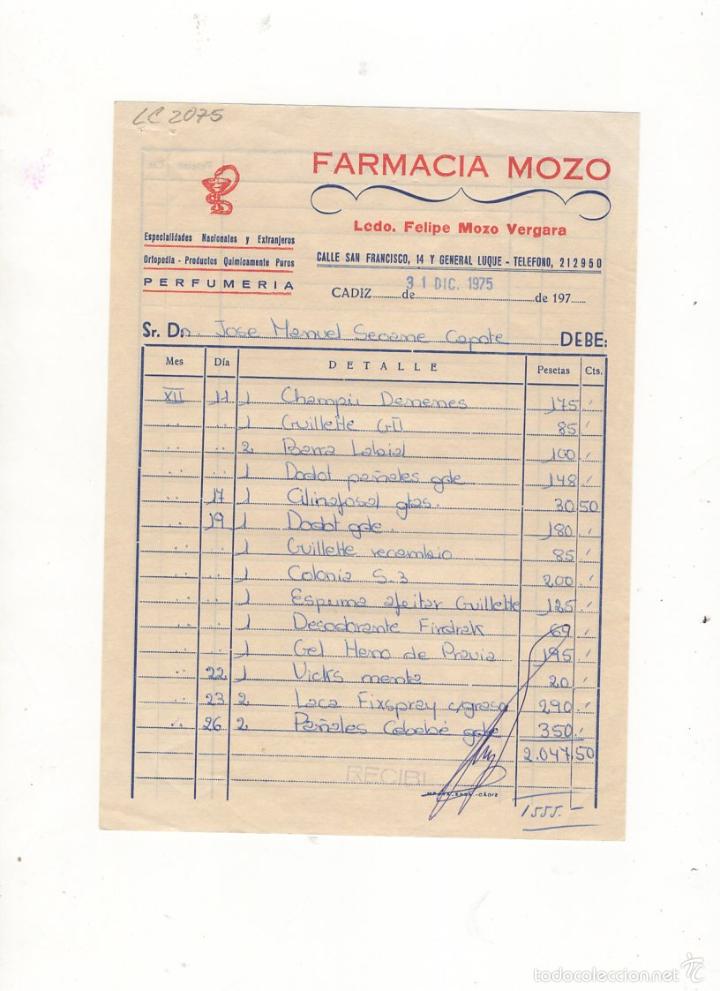 LC 2075
FARMACIA MOZO
Lcdo. Felipe Mozo Vergara
Especialidades Nacionales y Extranjeros
Ortopedia - Productos Quimicamente Puros
PERFUMERIA
CALLE SAN FRANCISCO, 14 Y GENERAL LUQUE - TELEFONO, 212950
31 DIC. 1975
CADIZ de de 197
Sr. Dn. Jose Manuel Seoane Capote DEBE:
Mes Día DETALLE Pesetas Cts.
XII 11 1 Champú 175
1 Guillette GII 85
2 Barra Labial 100
1 Dodot pañales gde 148
17 1 Cilinafosal gtas. 30 50
19 1 Dodot gde. 180
1 Guillette recambio 85
1 Colonia S.3 200
1 Espuma afeitar Guillette 125
1 Desodorante 69
1 Gel Heno de Pravia 195
22 1 Vicks menta 20
23 2 Laca Fixspray c/grasa 290
26 2 Pañales gde 350
2.047 50
RECIBI
CADIZ
1555.-
todocoleccion.net